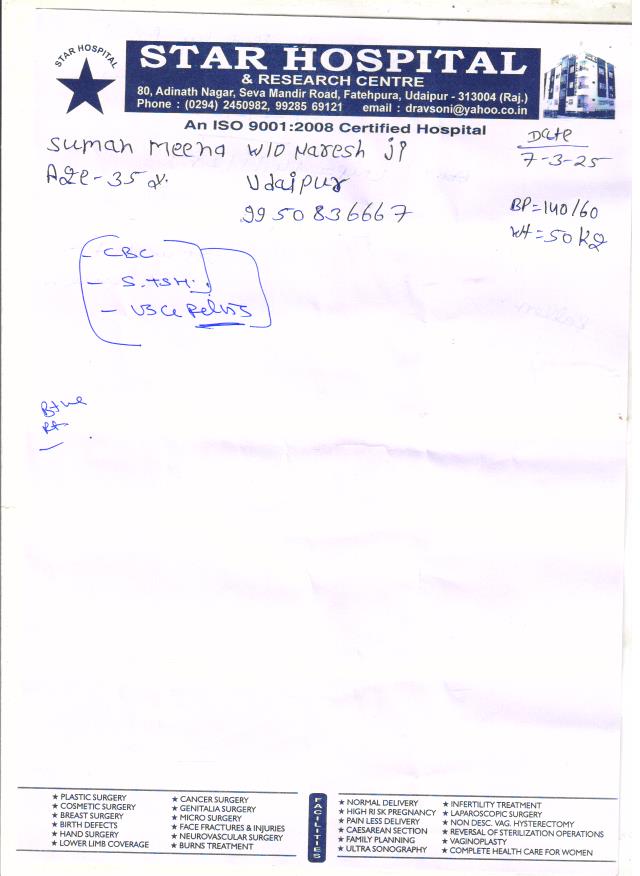 STAR HOSPITAL
STAR HOSPITAL
& RESEARCH CENTRE
80, Adinath Nagar, Seva Mandir Road, Fatehpura, Udaipur - 313004 (Raj.)
Phone : (0294) 2450982, 99285 69121 email : dravsoni@yahoo.co.in
An ISO 9001:2008 Certified Hospital
Date
7-3-25
Suman Meena W/O Naresh ji
Age-35 y.
Udaipur
9950836667
BP=140/60
wt=50kg
- CBC
- S.TSH
- USG Pelvis
B+ve
FACILITIES
★ PLASTIC SURGERY
★ COSMETIC SURGERY
★ BREAST SURGERY
★ BIRTH DEFECTS
★ HAND SURGERY
★ LOWER LIMB COVERAGE
★ CANCER SURGERY
★ GENITALIA SURGERY
★ MICRO SURGERY
★ FACE FRACTURES & INJURIES
★ NEUROVASCULAR SURGERY
★ BURNS TREATMENT
★ NORMAL DELIVERY
★ HIGH RI SK PREGNANCY
★ PAIN LESS DELIVERY
★ CAESAREAN SECTION
★ FAMILY PLANNING
★ ULTRA SONOGRAPHY
★ INFERTILITY TREATMENT
★ LAPAROSCOPIC SURGERY
★ NON DESC. VAG. HYSTERECTOMY
★ REVERSAL OF STERILIZATION OPERATIONS
★ VAGINOPLASTY
★ COMPLETE HEALTH CARE FOR WOMEN